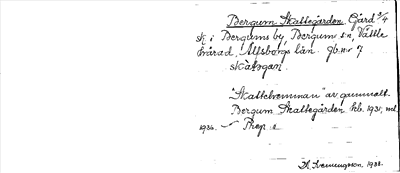 Bergum Skattegården Gård 3/4
sk i Bergums by, Bergum sn, Vättle
härad, Älfsborgs län. gb. nr 7
skattegan.
"Skattebromman" av gammalt.
Bergum Skattegården Feb. 1931, ml.
1936. — Prep. 2
1938.